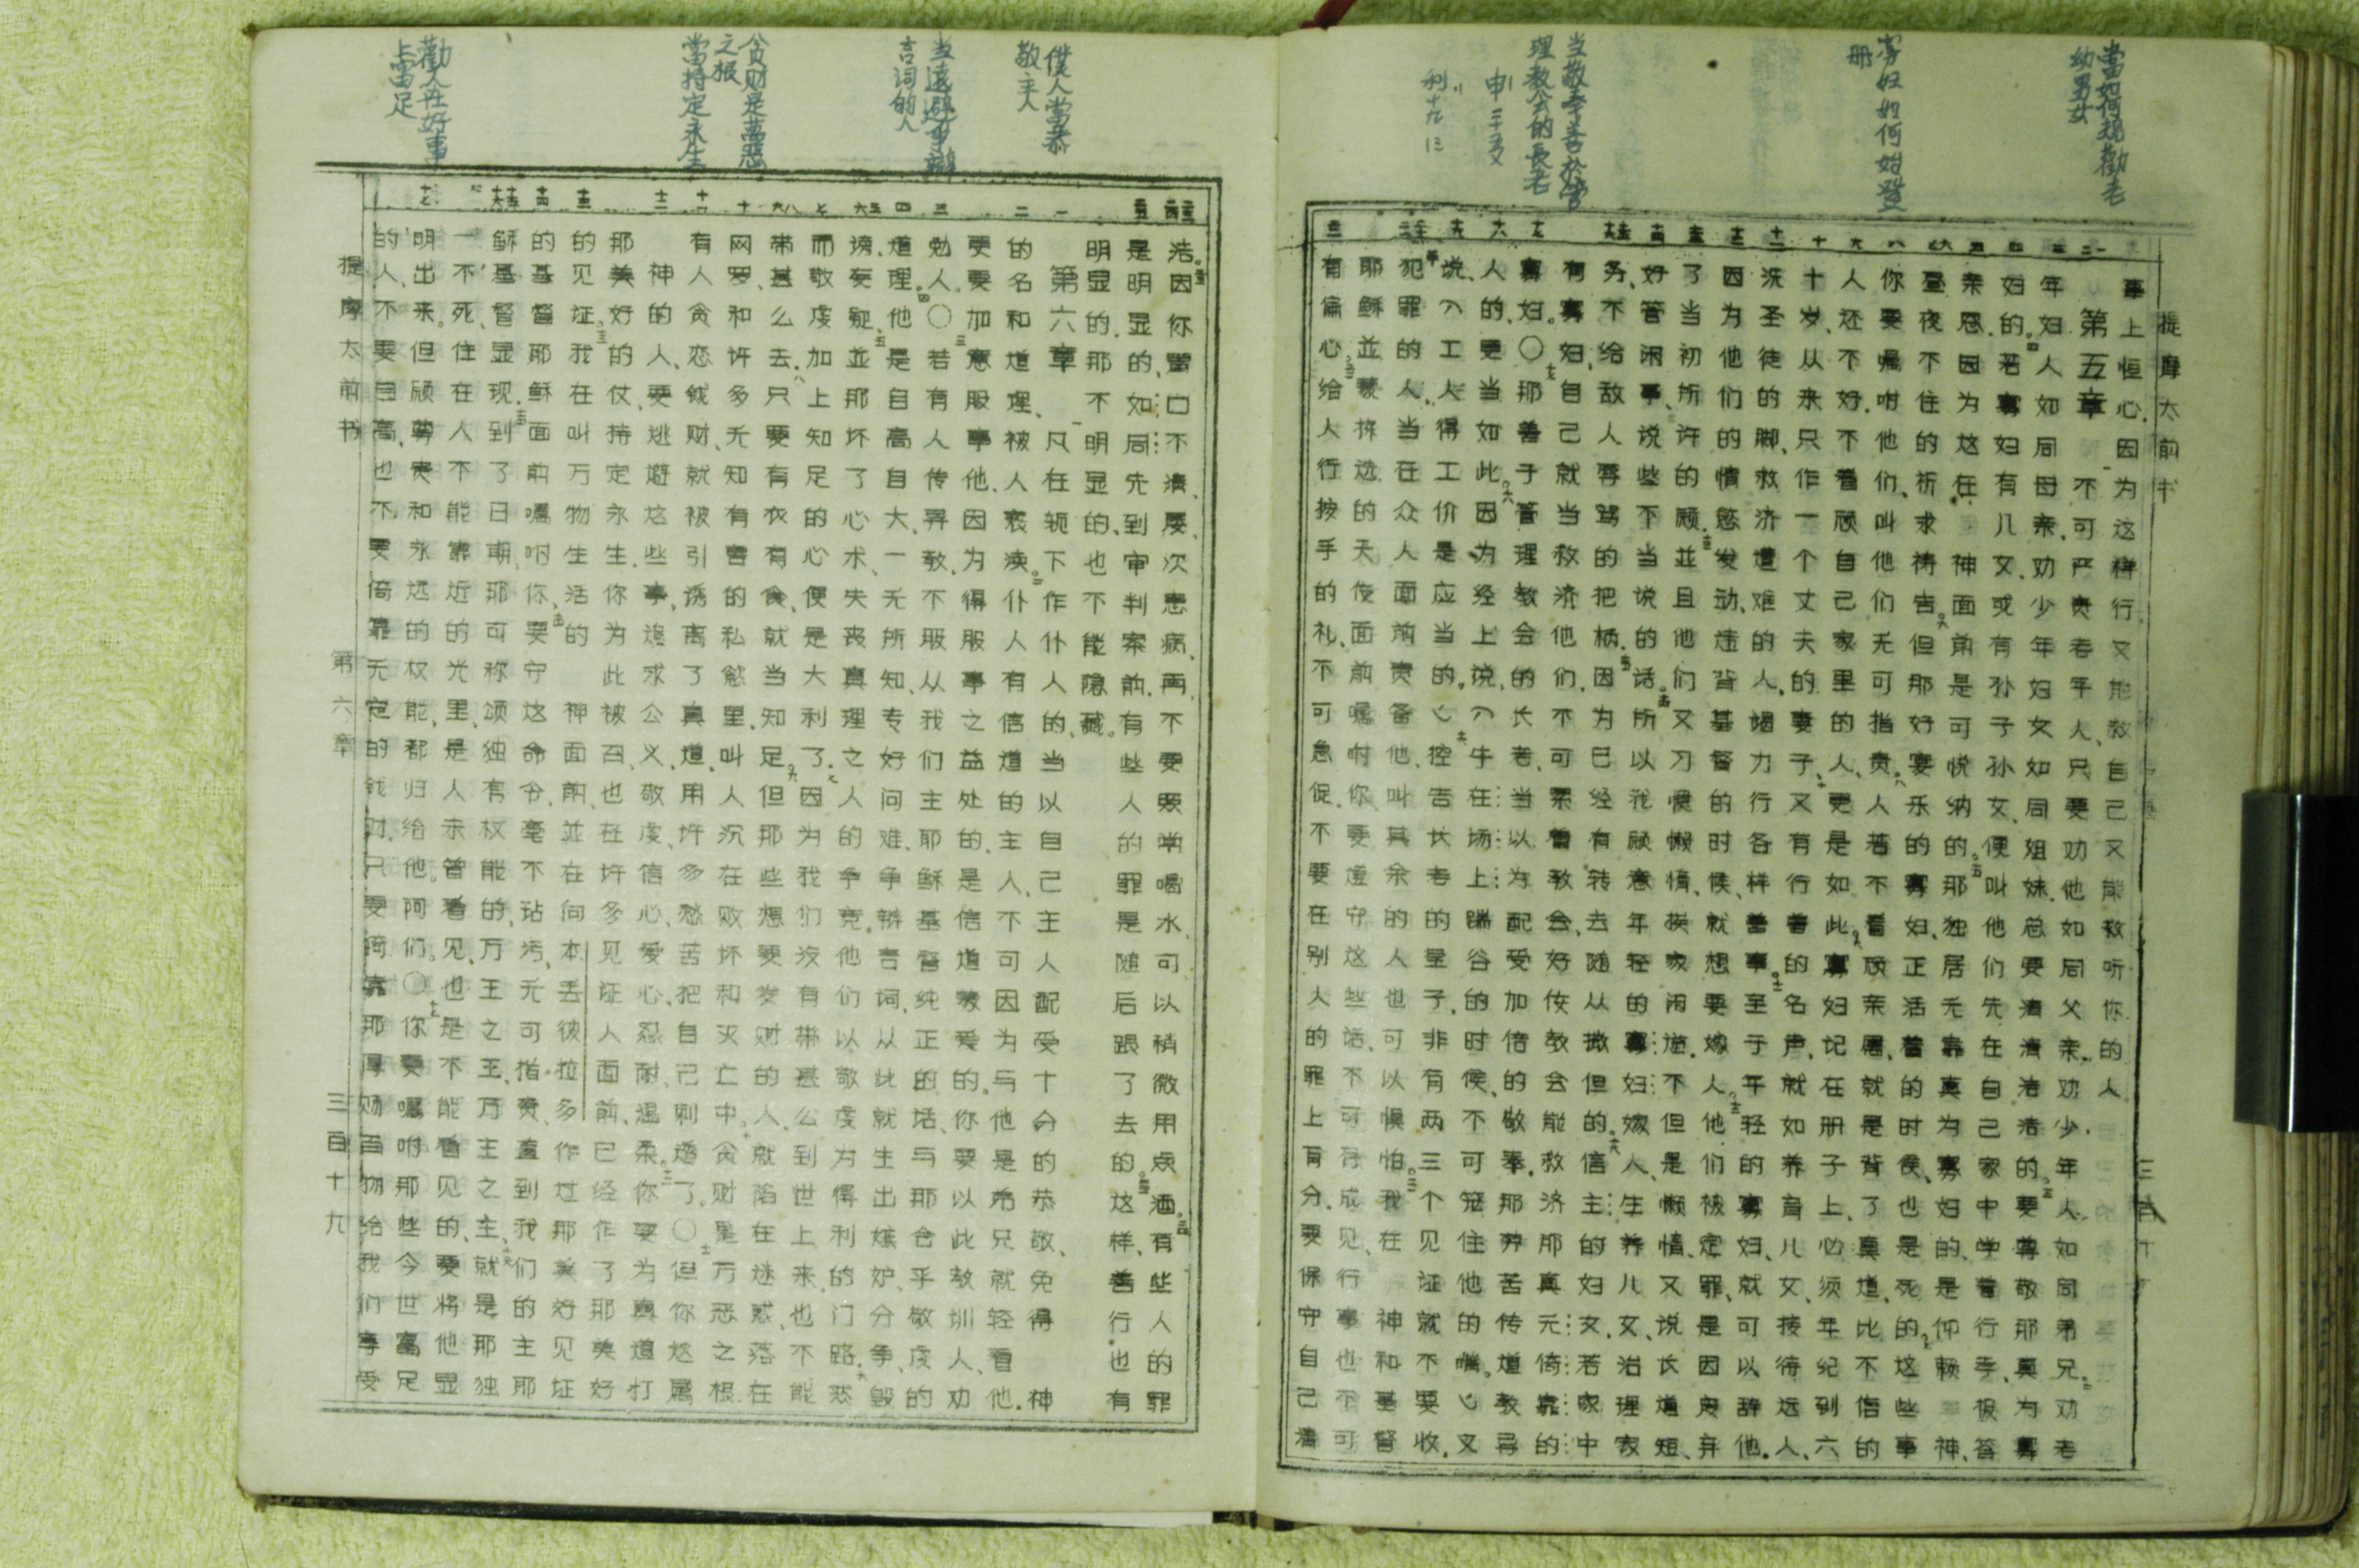 當如何規勸老幼男女
寡妇如何始登册
当敬奉善於管理教会的長老
提摩太前书
事上恒心.因为这样行又能救自己又能救听你的人.
第五章 一不可严责老年人、只要劝他如同父亲.劝少年人、如同弟兄.二劝老
年妇人如同母亲.劝少年妇女如同姐妹.总要清清洁洁的.三要尊敬那真为寡
妇的.四若寡妇有儿女、或有孙子孙女、便叫他们先在自己家中学着行孝、报答
亲恩.因为这在 神面前是可悦纳的.五那独居无靠真为寡妇的、是仰赖 神、
昼夜不住的祈求祷告.六但那好宴乐的寡妇、正活着的时候、也是死的.七这些事
你要嘱咐他们、叫他们无可指责.八人若不看顾亲属、就是背了真道、比不信的
人还不好.不看顾自己家里的人、更是如此.九寡妇记在册子上、必须年纪到六
十岁、从来只作一个丈夫的妻子、十又有行善的名声、就如养育儿女、接待远人、
洗圣徒的脚、救济遭难的人、竭力行各样善事.十一至于年轻的寡妇、就可以辞他.
因为他们的情慾发动、违背基督的时候、就想要嫁人.十二他们被定罪、是因废弃
了当初所许的愿.十三並且他们又习惯懒惰、挨家闲遊.不但是懒惰、又说长道短、
好管闲事、说些不当说的话.十四所以我愿意年轻的寡妇嫁人、生养儿女、治理家
务、不给敌人辱骂的把柄.十五因为已经有转去随从撒但的.十六信主的妇女、若家中
有寡妇、自己就当救济他们、不可累着教会、好使教会能救济那真无倚靠的
寡妇.〇十七那善于管理教会的长老、当以为配受加倍的敬奉.那劳苦传道教导
人的、更当如此.十八因为经上说、〈牛在场上踹谷的时候、不可笼住他的嘴.〉又
说、〈工人得工价是应当的.〉十九控告长老的呈子、非有两三个见证就不要收.
二十犯罪的人、当在众人面前责备他、叫其余的人也可以惧怕.二一我在 神和基督
耶稣並蒙拣选的天使面前嘱咐你、要遵守这些话、不可存成见、行事也不可
有偏心.二二给人行按手的礼、不可急促.不要在别人的罪上有分.要保守自己清
僕人當恭敬主人
当遠避爭辯言词的人
贪财是萬惡之根
當持定永生
勸人在好事上富足
洁.二三因你胃口不清、屡次患病、再不要照常喝水、可以稍微用点酒.二四有些人的罪
是明显的、如同先到审判案前.有些人的罪是随后跟了去的.二五这样、善行也有
明显的.那不明显的、也不能隐藏.
第六章 一凡在轭下作仆人的、当以自己主人配受十分的恭敬、免得 神
的名和道理、被人亵渎.二仆人有信道的主人、不可因为与他是弟兄就轻看他.
要加意服事他、因为得服事之益处的、是信道蒙爱的.你要以此教训人、劝
勉人.〇三若有人传异教、不服从我们主耶稣基督纯正的话、与那合乎敬虔的
道理.四他是自高自大、一无所知、专好问难、争辩言词、从此就生出嫉妒、分争、毁
谤、妄疑、五並那坏了心术、失丧真理之人的争竞.他们以敬虔为得利的门路.六然
而敬虔加上知足的心便是大利了.七因为我们没有带甚么到世上来、也不能
带甚么去.八只要有衣有食、就当知足.九但那些想要发财的人、就陷在迷惑、落在
网罗、和许多无知有害的私慾里、叫人沉在败坏和灭亡中.十贪财是万恶之根.
有人贪恋钱财、就被引诱离了真道、用许多愁苦把自己刺透了.〇十一但你这属
神的人、要逃避这些事、追求公义、敬虔、信心、爱心、忍耐、温柔.十二你要为真道打
那美好的仗、持定永生.你为此被召、也在许多见证人面前、已经作了那美好
的见证.十三我在叫万物生活的 神面前、並在向本丢彼拉多作过那美好见证
的基督耶稣面前嘱咐你、十四要守这命令、毫不玷污、无可指责、直到我们的主耶
稣基督显现.十五到了日期、那可称颂独有权能的、万王之王、万主之主、十六就是那独
一不死、住在人不能靠近的光里、是人未曾看见、也是不能看见的、要将他显
明出来.但愿尊贵和永远的权能、都归给他.阿们.〇十七你要嘱咐那些今世富足
的人、不要自高、也不要倚靠无定的钱财.只要倚靠那厚赐百物给我们享受
提摩太前书 第六章 三百十九